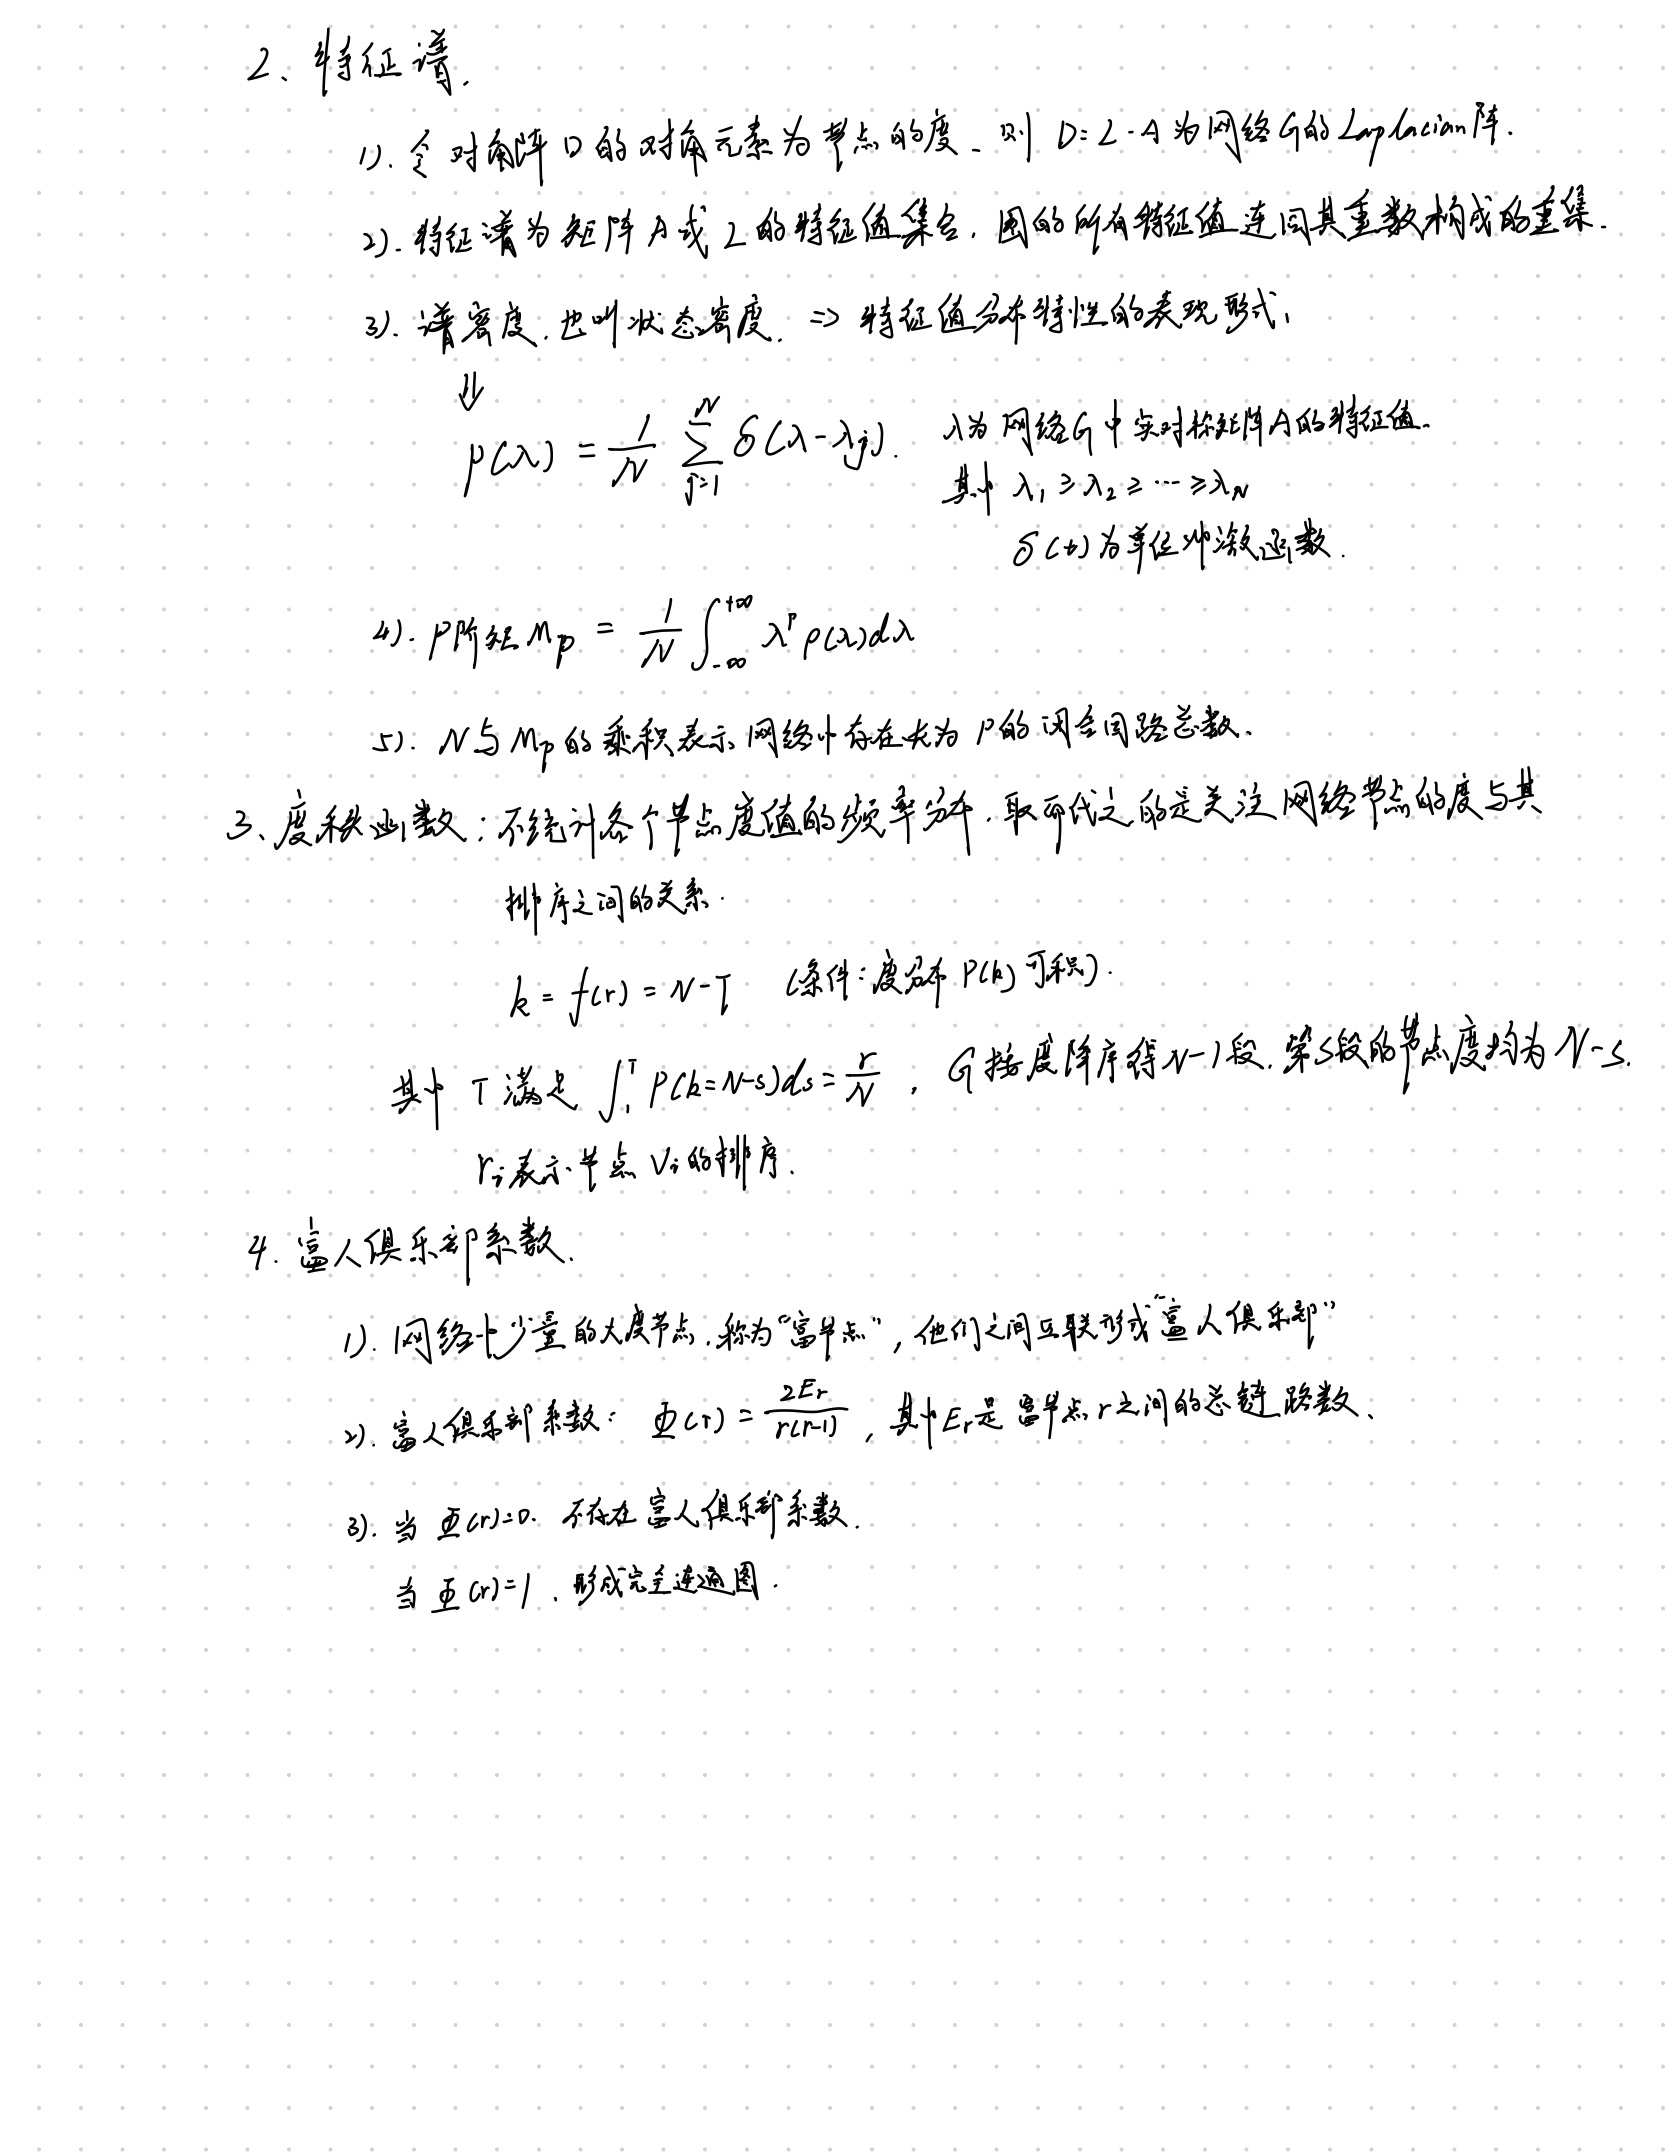 2、特征谱.
1). 令对角阵D的对角元素为节点的度、则 D=L-A 为网络G的Laplacian阵.
2). 特征谱为矩阵A或L的特征值集合. 图的所有特征值连同其重数构成的重集.
3). 谱密度. 也叫状态密度. => 特征值分布特性的表现形式.
⇓
ρ(λ) = 1/N ∑_{j=1}^{N} δ(λ-λj). λ为网络G中实对称矩阵A的特征值.
其中 λ₁ ≥ λ₂ ≥ ··· ≥ λ_N
δ(t)为单位冲激函数.
4). P阶矩 M_p = 1/N ∫_{-∞}^{+∞} λ^p ρ(λ)dλ
5). N与M_p的乘积表示网络中存在长为P的闭合回路总数.
3、度秩函数：不统计各个节点度值的频率分布. 取而代之的是关注网络节点的度与其
排序之间的关系.
k = f(r) = N-T (条件：度分布 P(k) 可积).
其中 T 满足 ∫_1^T P(k=N-s)ds = r/N , G按度降序得N-1段. 第S段的节点度均为N-s.
r_i表示节点V_i的排序.
4. 富人俱乐部系数.
1). 网络中少量的大度节点. 称为“富节点”, 他们之间互联形成“富人俱乐部”
2). 富人俱乐部系数： Φ(r) = 2E_r/r(r-1) , 其中E_r是富节点r之间的总链路数、
3). 当 Φ(r)=0. 不存在富人俱乐部系数.
当 Φ(r)=1 . 形成完全连通图.